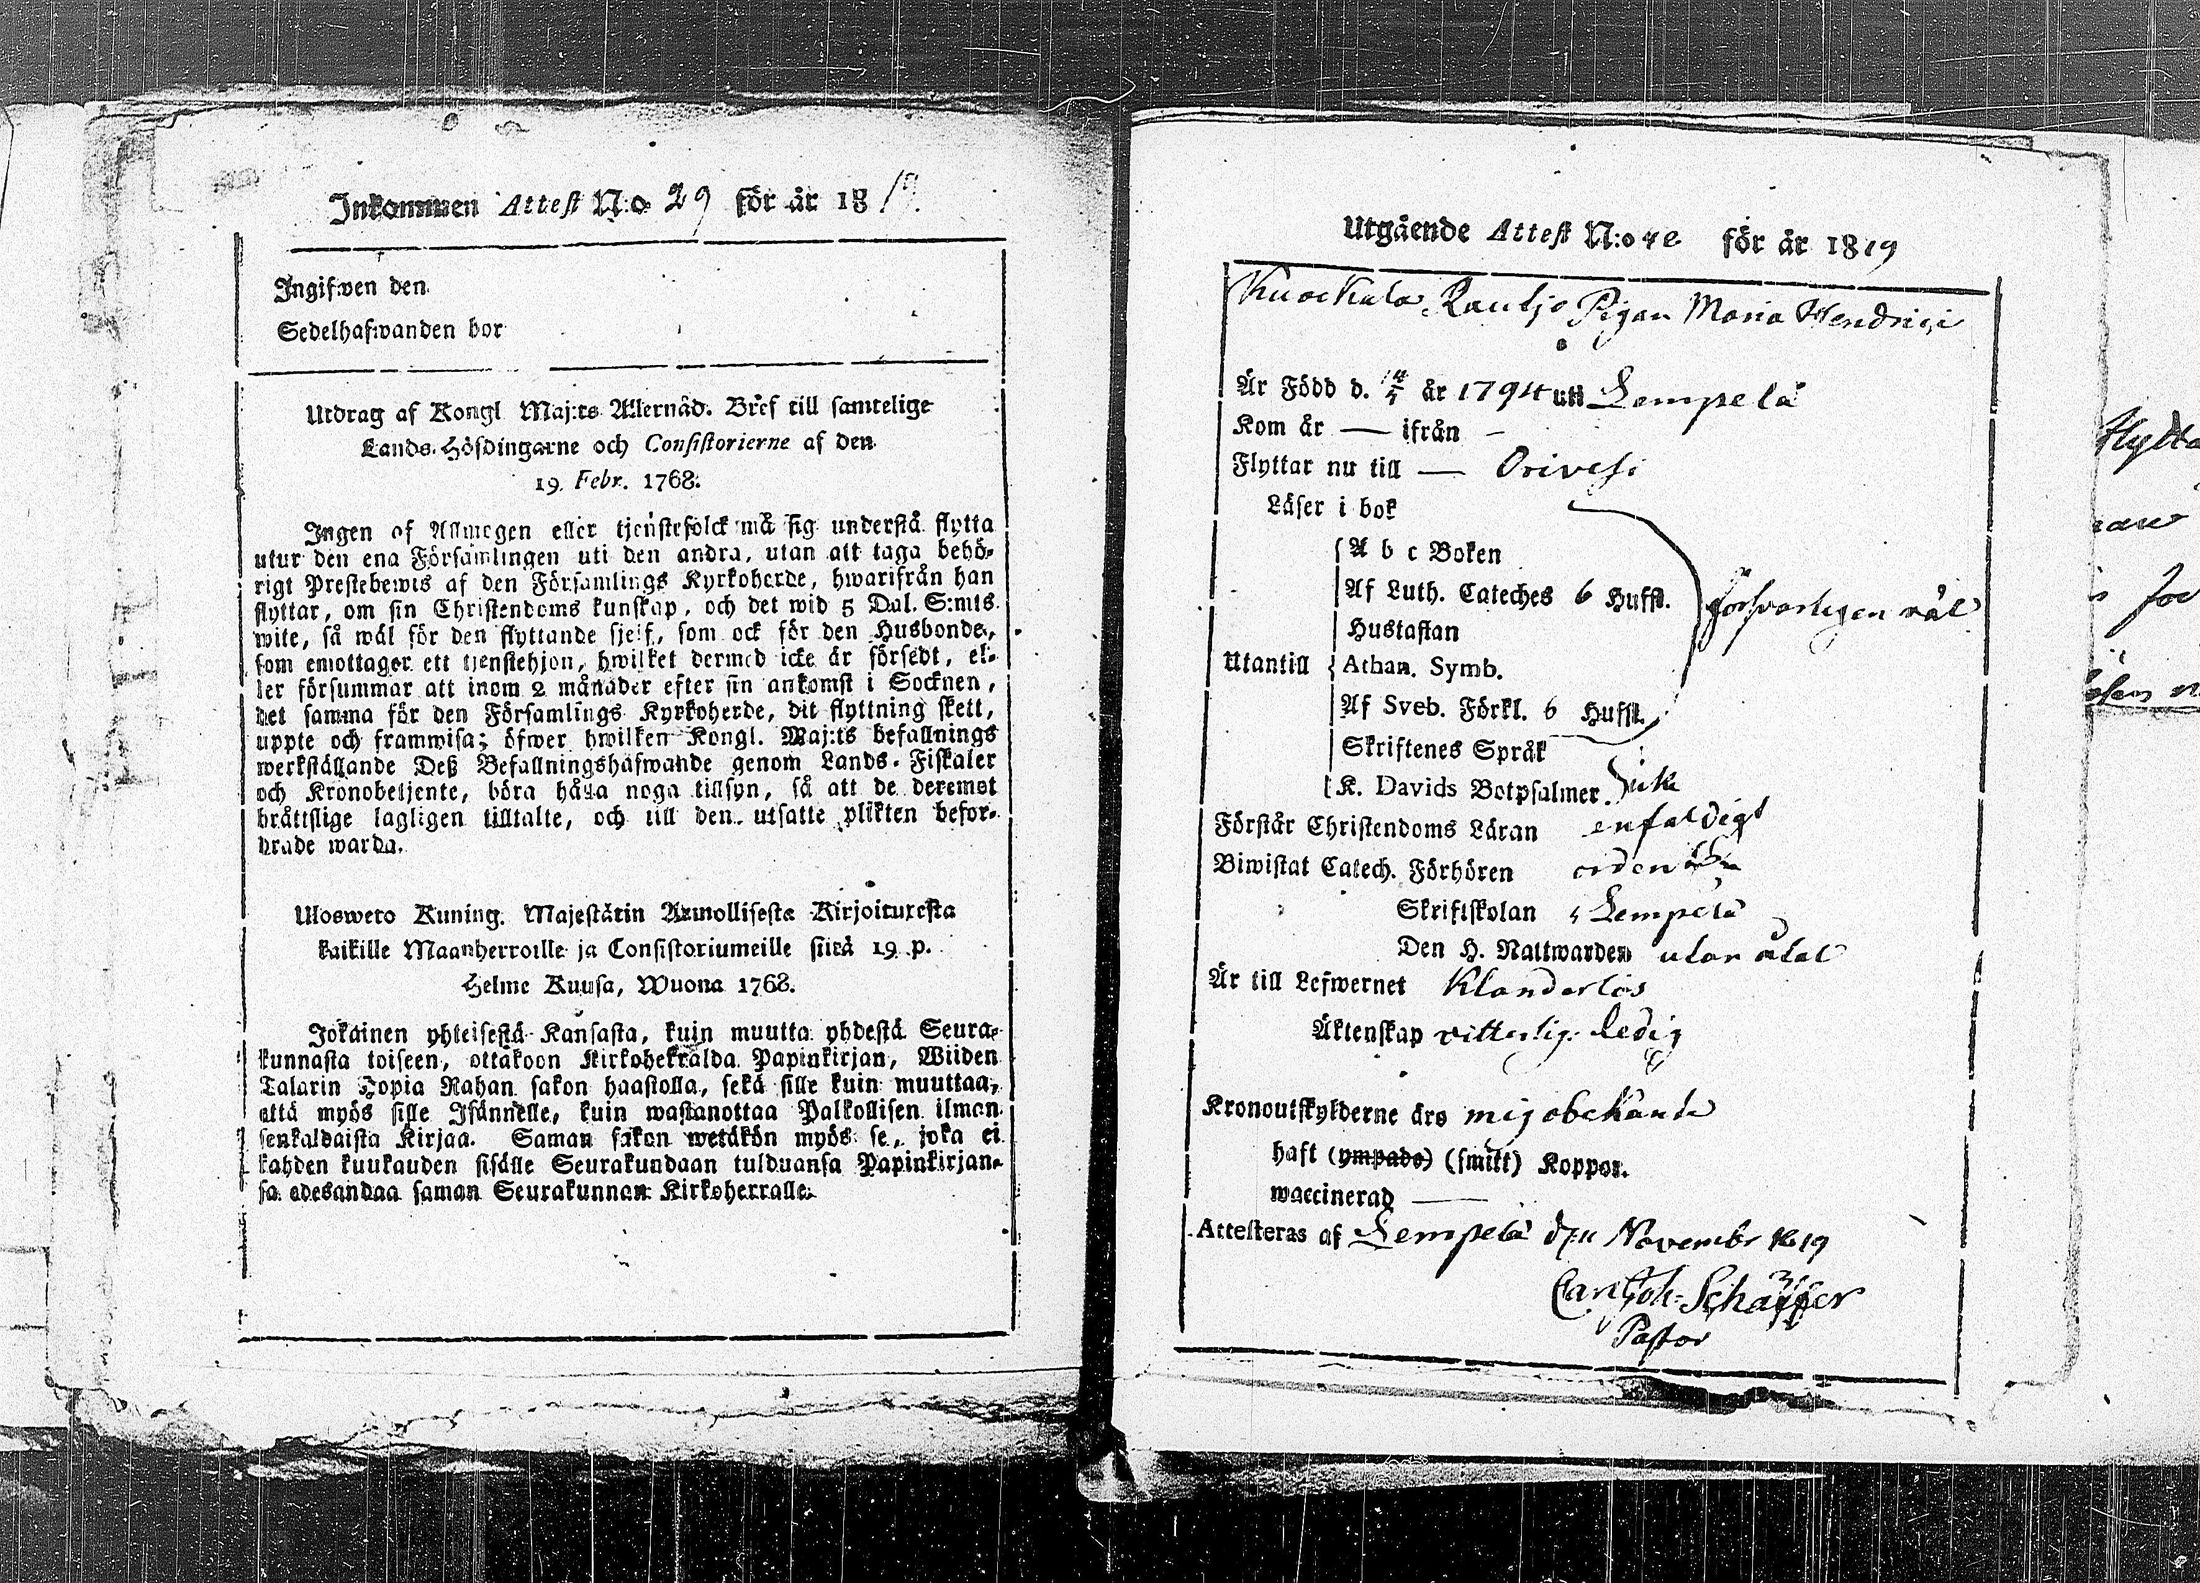 Inkommen Attest N:o 29 för år 1819.
Ingifwen den
Sedelhafwanden bor
Utdrag af Kongl Maj:ts Allernåd. Bref till samtelige
Lands-Höfdingarne och Consistorierne af den
19. Febr. 1768.
Ingen af Allmogen eller tjenstefolck må sig understå flytta
utur den ena Församlingen uti den andra, utan att taga behö-
rigt Prestebewis af den Församlings Kyrkoherde, hwarifrån han
flyttar, om sin Christendoms kunskap, och det wid 5 Dal. S:mts
wite, så wäl för den flyttande sjelf, som ock för den Husbonde,
som emottager ett tjenstehjon, hwilket dermed icke är försedt, el-
ler försummar att inom 2 månader efter sin ankomst i Socknen,
det samma för den Församlings Kyrkoherde, dit flyttning skett,
uppte och frammwisa; öfwer hwilken Kongl. Maj:ts befallnings
werkställande Deß Befallningshafwande genom Lands-Fiskaler
och Kronobetjente, böra hålla noga tillsyn, så att de deremot
bråttslige lagligen tilltalte, och till den utsatte plikten befor-
drade warda.
Ulosweto Kuning. Majestätin Armollisesta Kirjoituxesta
kaikille Maanherroille ja Consistoriumeille siitä 19 p.
Helme Kuusa, Wuona 1768.
Jokainen yhteisestä Kansasta, kuin muutta yhdestä Seura-
kunnasta toiseen, ottakoon Kirkohekralda Papinkirjan, Wiiden
Talarin Hopia Rahan sakon haastolla, sekä sille kuin muuttaa,
että myös sille Isännelle, kuin wastanottaa Palkollisen ilman
senkaldaista Kirjaa. Saman sakon wetäkön myös se, joka ei
kahden kuukauden sisälle Seurakundaan tulduansa Papinkirjan-
sa edesandaa saman Seurakunnan Kirkoherralle.
Utgående Attest N:o för år 1819
Pigan Maria Hendrici
Är Född d. år 1794 uti Lempelä
Kom år — ifrån —
Flyttar nu till — Orivesi
Läser i bok
A b c Boken
Af Luth. Cateches 6 Hufst. försvarligen väl
Hustaflan
Utantill Athan. Symb.
Af Sveb. Förkl. 6 Hufst.
Skriftenes Språk
K. Davids Botpsalmer. icke
Förstår Christendoms Läran enfaldigt
Biwistat Catech. Förhören
Skriftskolan i Lempelä
Den H. Nattwarden utan åtal
Är till Lefwernet Klanderlös
Äktenskap vitterlig: ledig
Kronoutskylderne äro mig obekante
haft (ympade) (smitt) Koppor.
waccinerad —
Attesteras af Lempelä d. 11 Novembr 1819
Carl Joh: Schäffer
Pastor